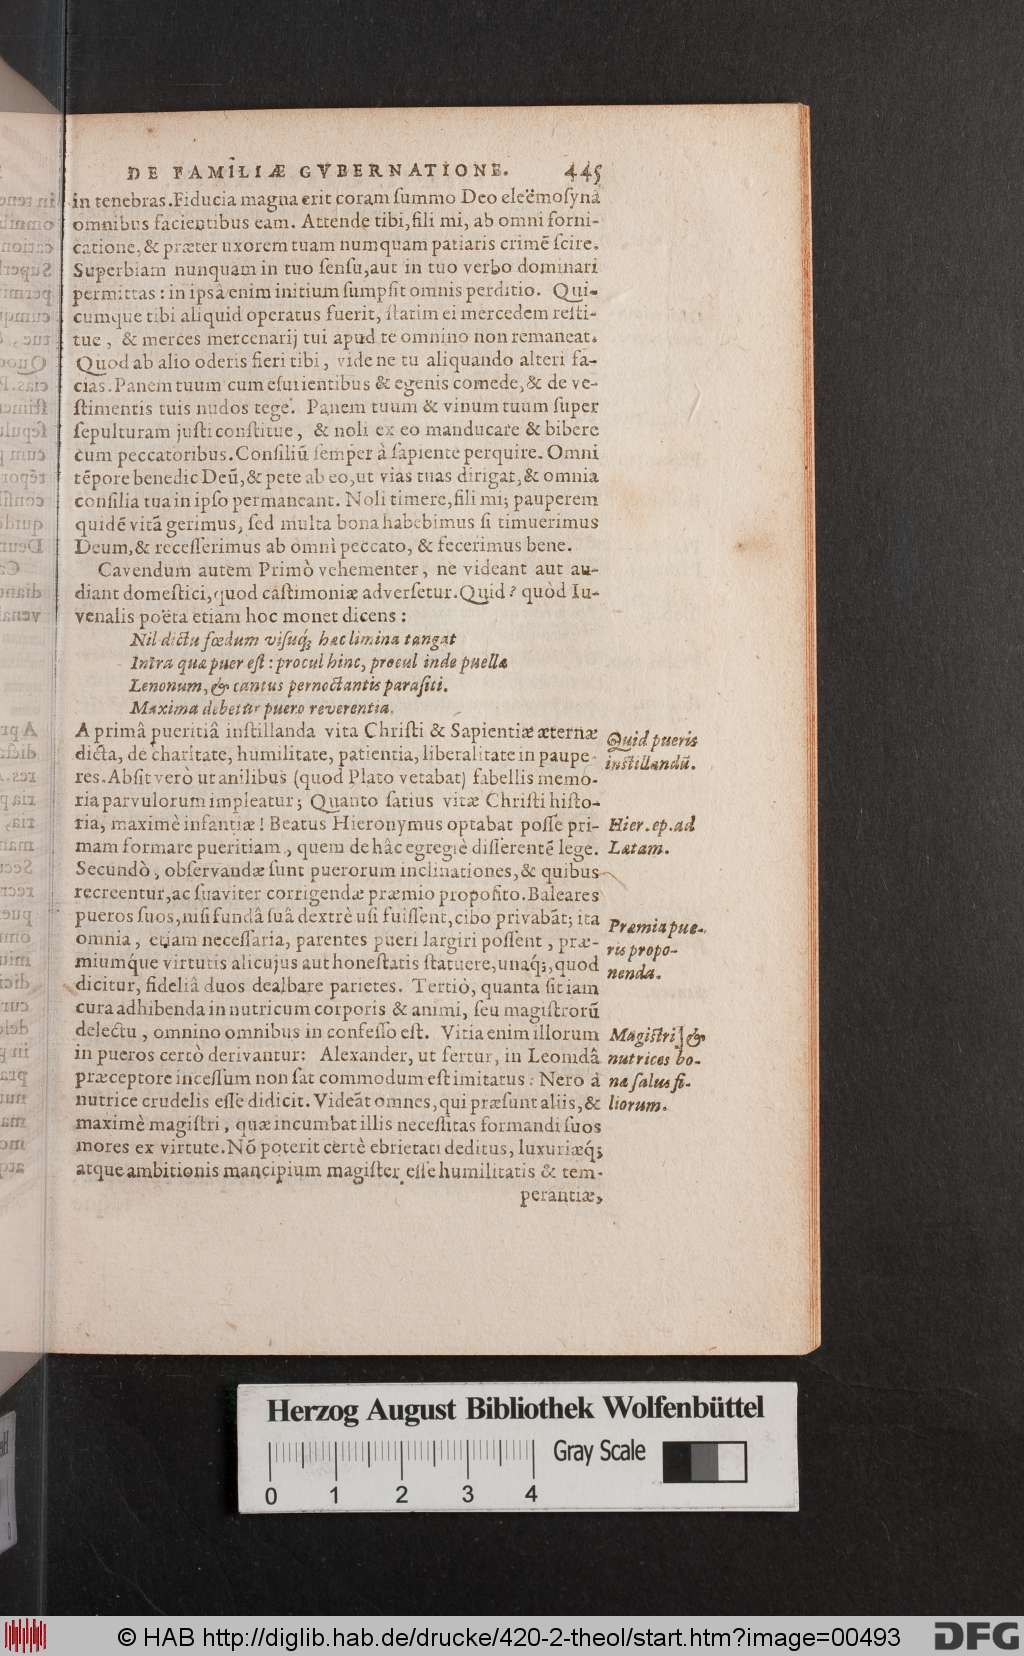 DE FAMILIÆ GVBERNATIONE. 445
in tenebras. Fiducia magna erit coram summo Deo eleëmosynâ
omnibus facientibus eam. Attende tibi, fili mi, ab omni forni-
catione, & præter uxorem tuam numquam patiaris crimē scire.
Superbiam nunquam in tuo sensu, aut in tuo verbo dominari
permittas : in ipsâ enim initium sumpsit omnis perditio. Qui-
cumque tibi aliquid operatus fuerit, statim ei mercedem resti-
tue, & merces mercenarij tui apud te omnino non remaneat.
Quod ab alio oderis fieri tibi, vide ne tu aliquando alteri fa-
cias. Panem tuum cum esurientibus & egenis comede, & de ve-
stimentis tuis nudos tege. Panem tuum & vinum tuum super
sepulturam justi constitue, & noli ex eo manducare & bibere
cum peccatoribus. Consiliū semper à sapiente perquire. Omni
tēpore benedic Deū, & pete ab eo, ut vias tuas dirigat, & omnia
consilia tua in ipso permaneant. Noli timere, fili mi; pauperem
quidē vitā gerimus, sed multa bona habebimus si timuerimus
Deum, & recesserimus ab omni peccato, & fecerimus bene.
Cavendum autem Primò vehementer, ne videant aut au-
diant domestici, quod castimoniæ adversetur. Quid? quòd Iu-
venalis poëta etiam hoc monet dicens :
Nil dictu fœdum visuq́; hæc limina tangat
Intra quæ puer est : procul hinc, procul inde puellæ
Lenonum, & cantus pernoctantis parasiti.
Maxima debetur puero reverentia.
A primâ pueritiâ instillanda vita Christi & Sapientiæ æternæ
dicta, de charitate, humilitate, patientia, liberalitate in paupe-
res. Absit verò ut anilibus (quod Plato vetabat) fabellis memo-
ria parvulorum impleatur; Quanto satius vitæ Christi histo-
ria, maximè infantiæ! Beatus Hieronymus optabat posse pri-
mam formare pueritiam, quem de hâc egregiè disserentē lege.
Secundò, observandæ sunt puerorum inclinationes, & quibus
recreentur, ac suaviter corrigendæ præmio proposito. Baleares
pueros suos, nisi fundâ suâ dextrè usi fuissent, cibo privabāt; ita
omnia, etiam necessaria, parentes pueri largiri possent, præ-
miumq́ue virtutis alicujus aut honestatis statuere, unaq́;, quod
dicitur, fideliâ duos dealbare parietes. Tertiò, quanta sit iam
cura adhibenda in nutricum corporis & animi, seu magistrorū
delectu, omnino omnibus in confesso est. Vitia enim illorum
in pueros certò derivantur: Alexander, ut fertur, in Leonidâ
præceptore incessum non sat commodum est imitatus : Nero à
nutrice crudelis esse didicit. Videāt omnes, qui præsunt aliis, &
maximè magistri, quæ incumbat illis necessitas formandi suos
mores ex virtute. Nō poterit certè ebrietati deditus, luxuriæq́;
atque ambitionis mancipium magister esse humilitatis & tem-
perantiæ,
Quid pueris
instillandū.
Hier. ep. ad
Lætam.
Præmia pue-
ris propo-
nenda.
Magistri, &
nutrices bo-
næ salus fi-
liorum.
Herzog August Bibliothek Wolfenbüttel
Gray Scale
0 1 2 3 4
© HAB http://diglib.hab.de/drucke/420-2-theol/start.htm?image=00493
DFG